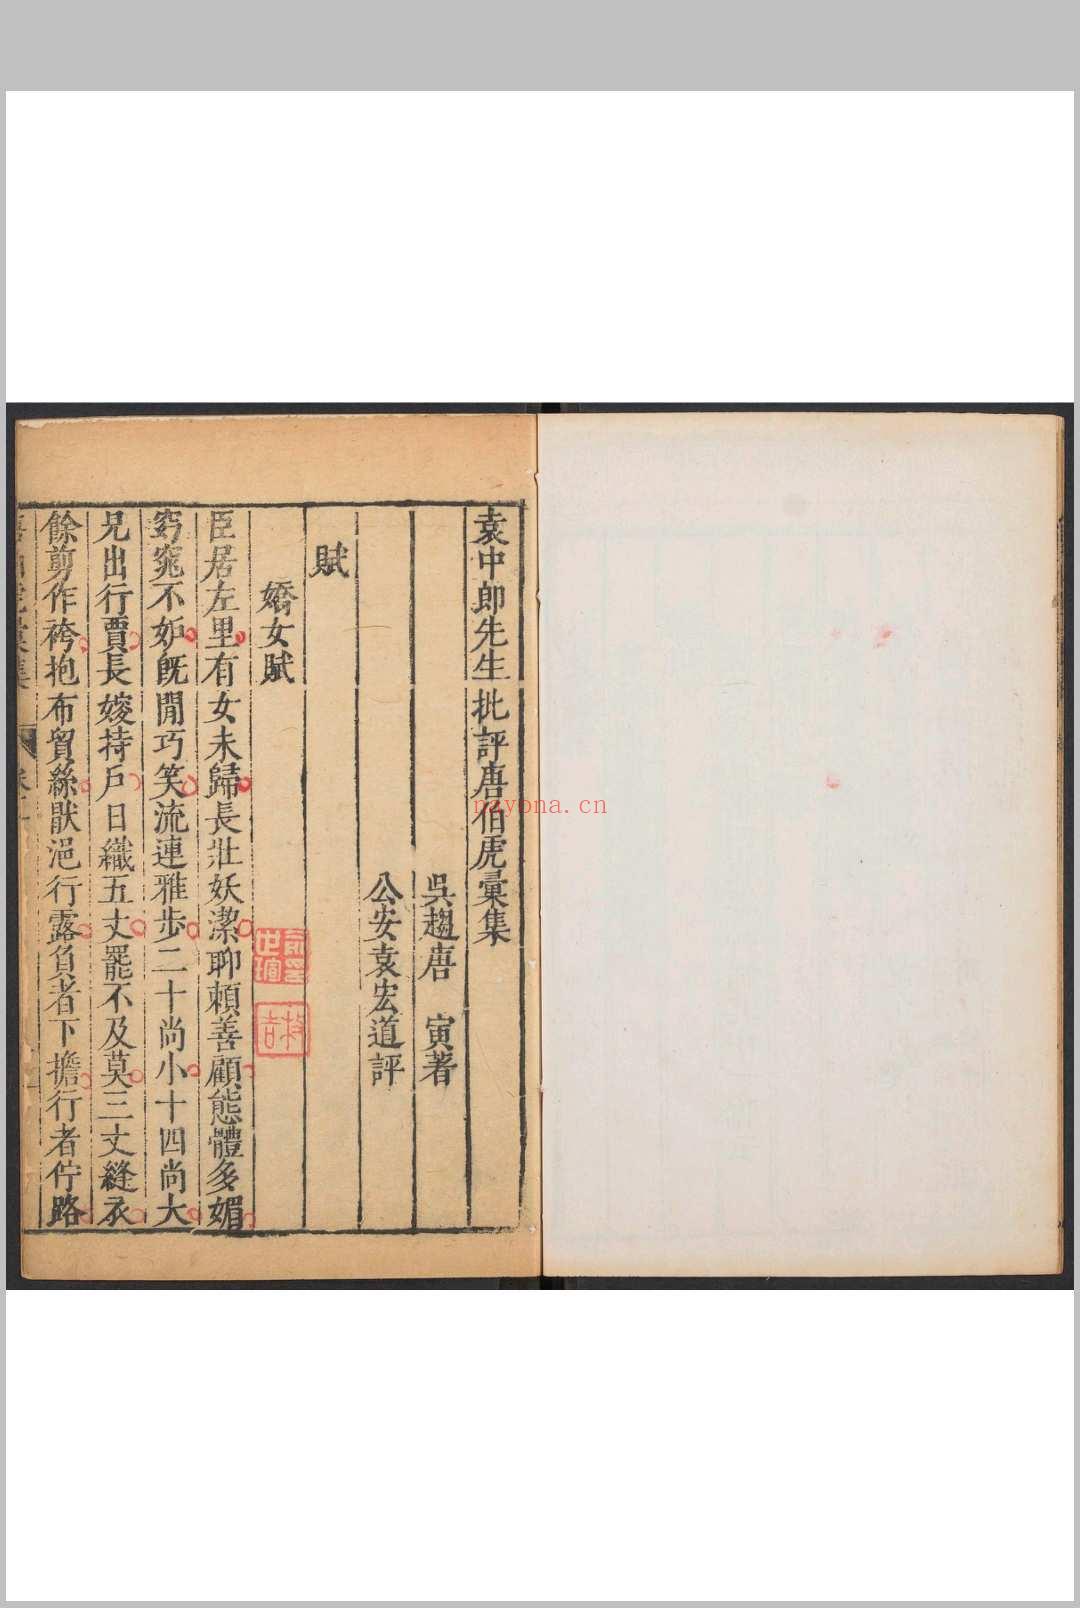 袁中郎先生批評唐伯虎彙集
吳趨唐　寅著
公安袁宏道評
賦
嬌女賦
臣居左里有女未歸長壯妖潔聊頼善顧態體多媚
窈窕不妒既閒巧笑流連雅步二十尚小十四尚大
兄出行賈長嫂持戶日織五丈罷不及莫三丈縫衣
餘剪作袴抱布貿絲厭浥行露負者下擔行者佇路
nayona.cn